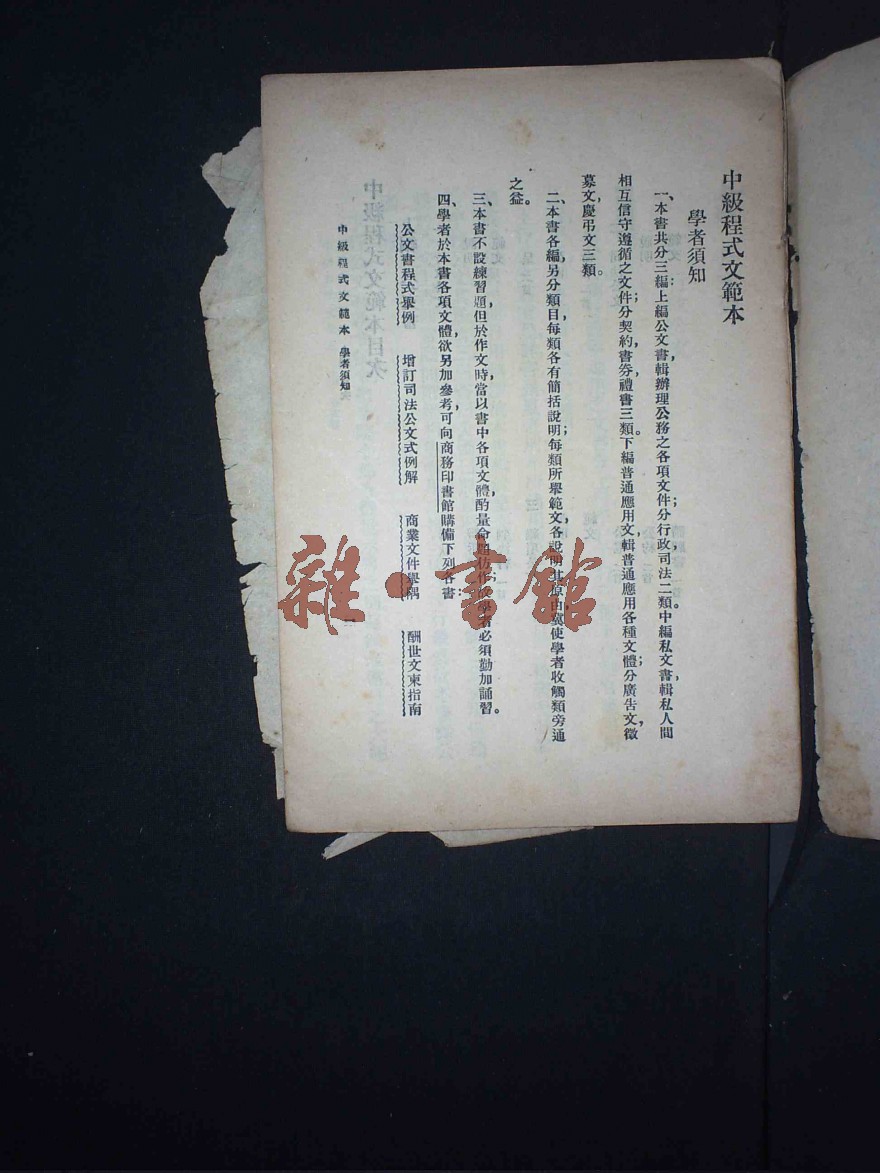 中級程式文範本
學者須知
一、本書共分三編：上編公文書，輯辦理公務之各項文件，分行政司法二類。中編私文書，輯私人間
相互信守遵循之文件，分契約，書券，禮書三類。下編普通應用文，輯普通應用各種文體，分廣告文，徵
募文，慶弔文三類。
二、本書各編，另分類目，每類各有簡括說明；每類所舉範文，各說明其原由，冀使學者收觸類旁通
之益。
三、本書不設練習題，但於作文時，當以書中各項文體，酌量命題仿作；故學者必須勤加誦習。
四、學者於本書各項文體，欲另加參考，可向商務印書館購備下列各書：
公文書程式舉例　增訂司法公文式例解　商業文件舉隅　酬世文柬指南
中級程式文範本　學者須知
雜·書館